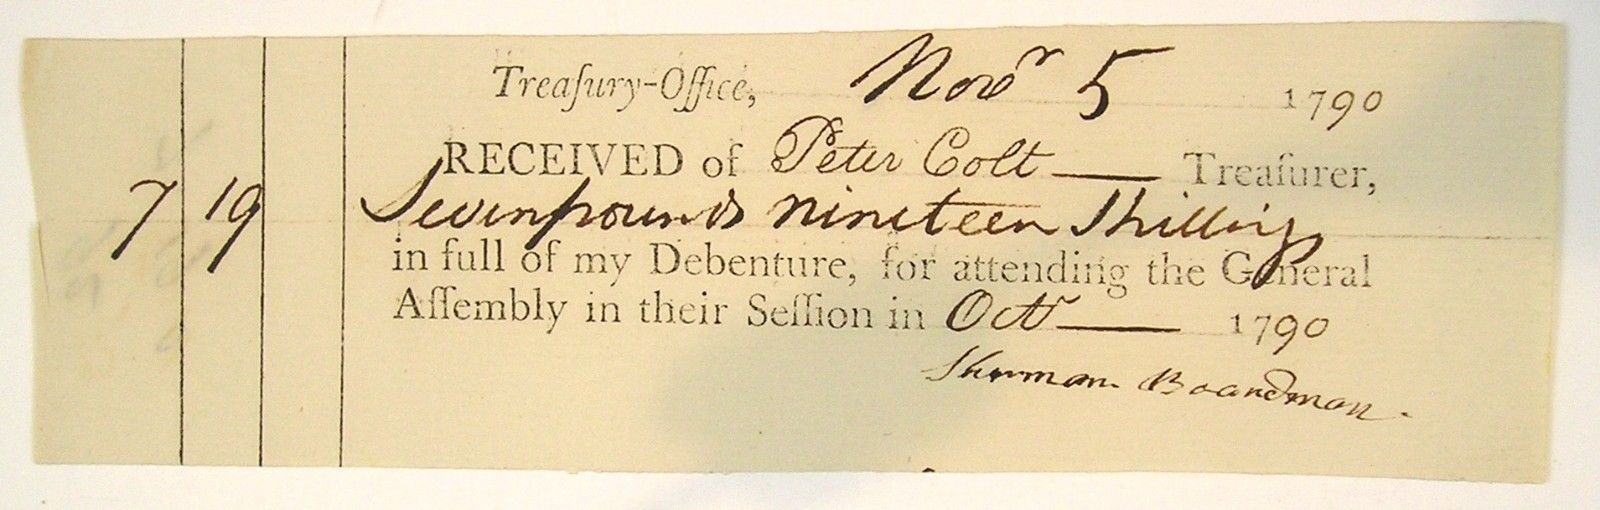 Treaſury-Office, Novr 5 1790
RECEIVED of Peter Colt — Treaſurer,
7 19 Sevenpounds nineteen Shillings
in full of my Debenture, for attending the General
Aſſembly in their Seſſion in Octr — 1790
Sherman Boardman.